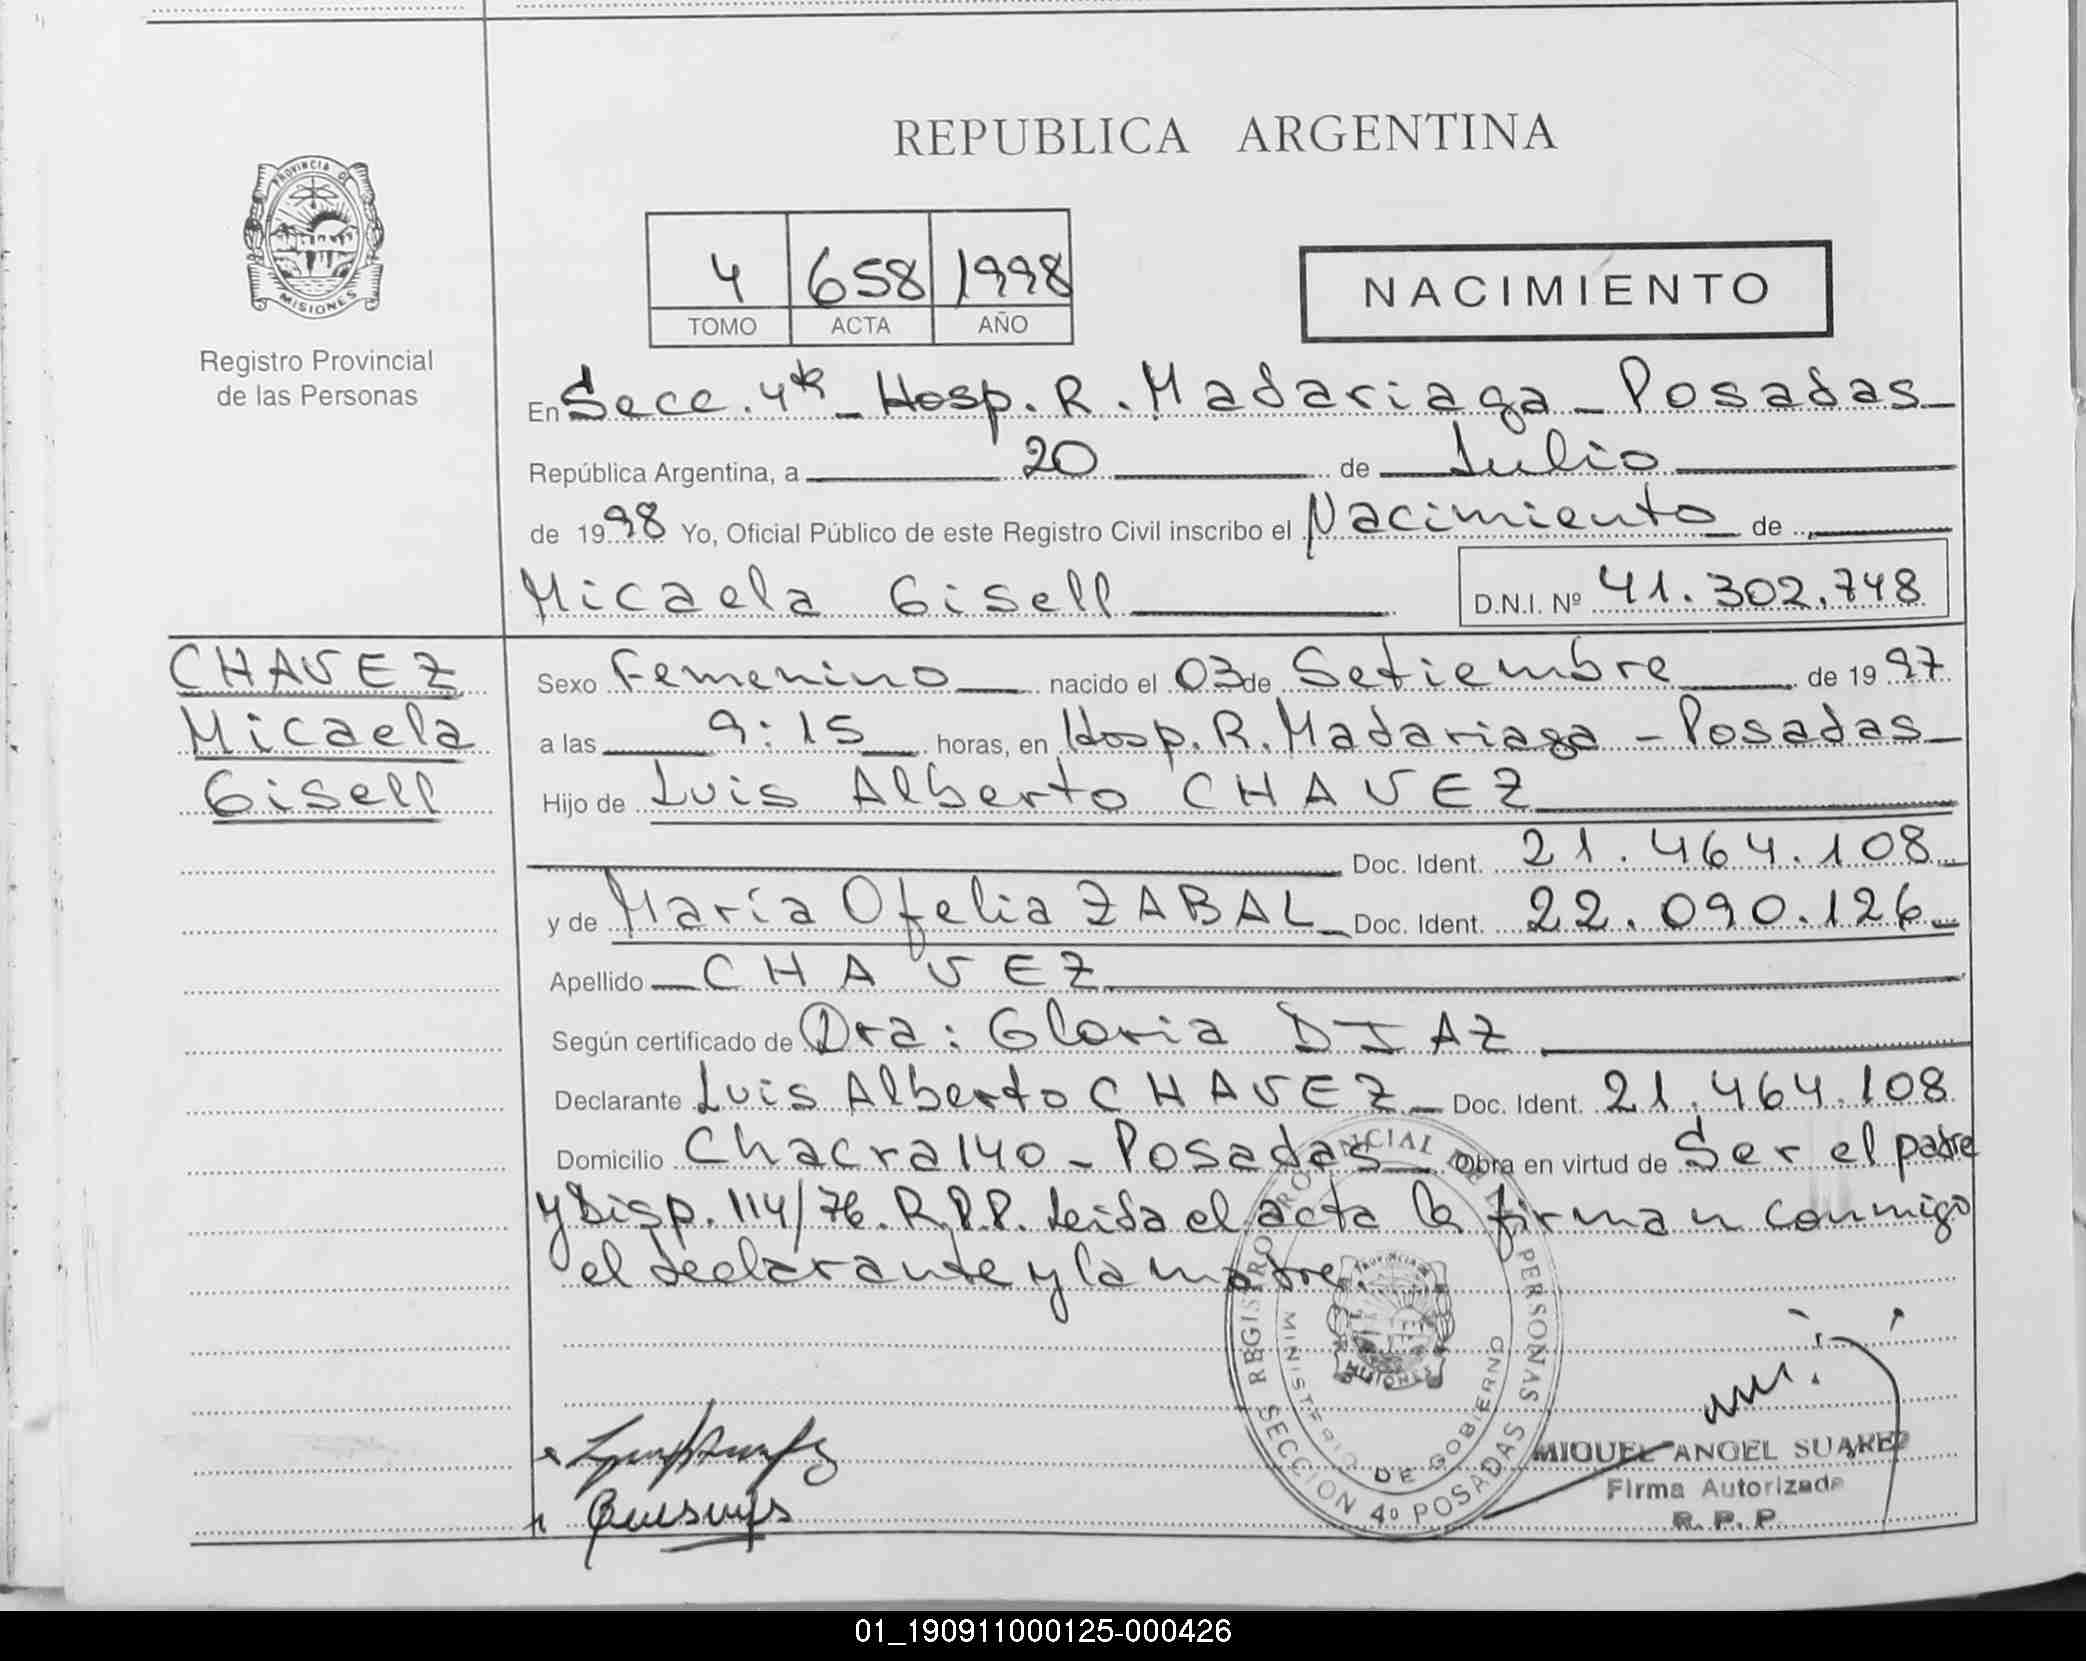 REPUBLICA ARGENTINA
PROVINCIA DE
MISIONES
Registro Provincial
de las Personas
4 658 1998
TOMO ACTA AÑO
NACIMIENTO
En Secc. 4ta - Hosp. R. Madariaga - Posadas
República Argentina, a 20 de Julio
de 1998 Yo, Oficial Público de este Registro Civil inscribo el Nacimiento de
Micaela Gisell D.N.I. Nº 41.302.748
CHAVEZ
Micaela
Gisell
Sexo Femenino nacido el 03 de Setiembre de 1997
a las 9:15 horas, en Hosp. R. Madariaga - Posadas
Hijo de Luis Alberto CHAVEZ
Doc. Ident. 21.464.108
y de María Ofelia ZABAL Doc. Ident. 22.090.126
Apellido CHAVEZ
Según certificado de Dra: Gloria DIAZ
Declarante Luis Alberto CHAVEZ Doc. Ident. 21.464.108
Domicilio Chacra 140 - Posadas Obra en virtud de Ser el padre
y Disp. 114/76. R.P.P. Leida el acta la firman conmigo
el declarante y la madre.
REGISTRO PROVINCIAL DE LAS PERSONAS
SECCION 4º POSADAS
MINISTERIO DE GOBIERNO
MISIONES
MIGUEL ANGEL SUAREZ
Firma Autorizada
R. P. P.
01_190911000125-000426